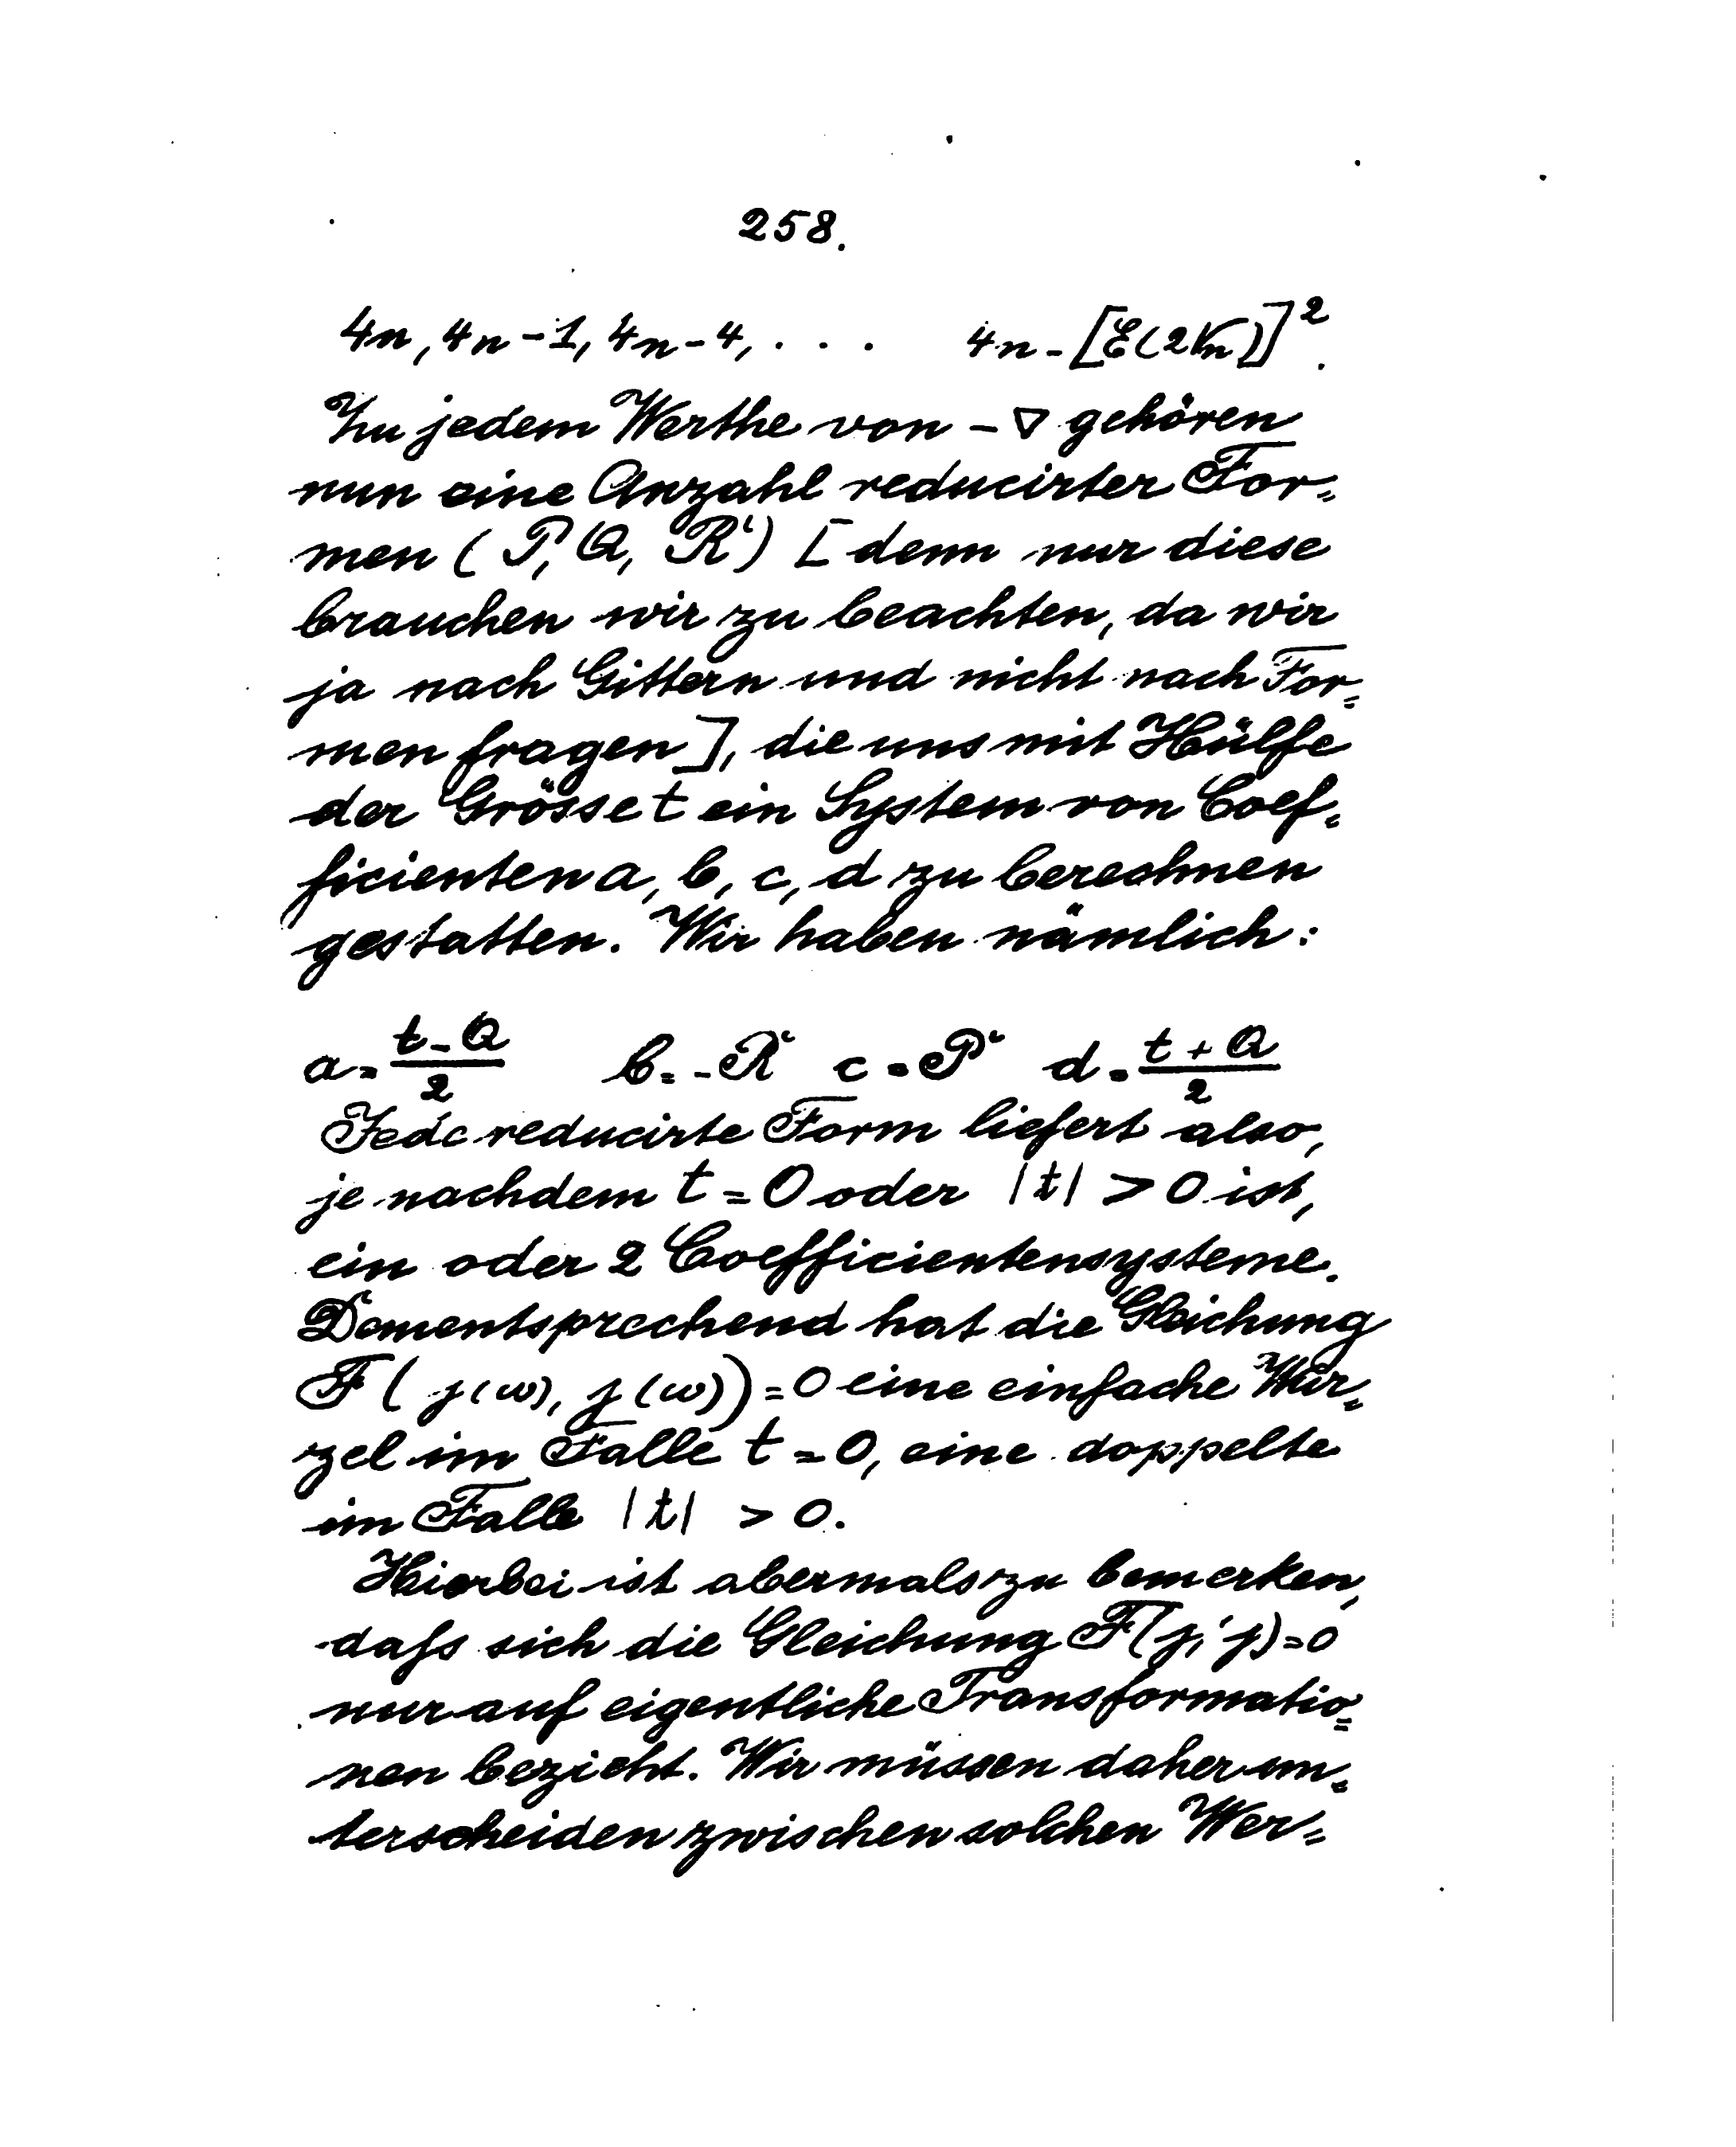 258.
4n, 4n-1, 4n-4, . . . 4n-[E(2√n)]².
Zu jedem Werthe von -∇ gehören
nun eine Anzahl reducirter For=
men (P, Q, R) [denn nur diese
brauchen wir zu beachten, da wir
ja nach Gittern und nicht nach For=
men fragen], die uns mit Hülfe
der Grösse t ein System von Coef=
ficienten a, b, c, d zu berechnen
gestatten. Wir haben nämlich:
a = (t-Q)/2 b = -R c = P d = (t+Q)/2
Jede reducirte Form liefert also,
je nachdem t = 0 oder |t| > 0 ist,
ein oder 2 Coefficientensysteme.
Dementsprechend hat die Gleichung
F(j(ω), j(ω)) = 0 eine einfache Wur=
zel im Falle t = 0, eine doppelte
im Falle |t| > 0.
Hierbei ist abermals zu bemerken,
daſs sich die Gleichung F(j,'j)=0
nur auf eigentliche Transformatio=
nen bezieht. Wir müssen daher un=
terscheiden zwischen solchen Wer=